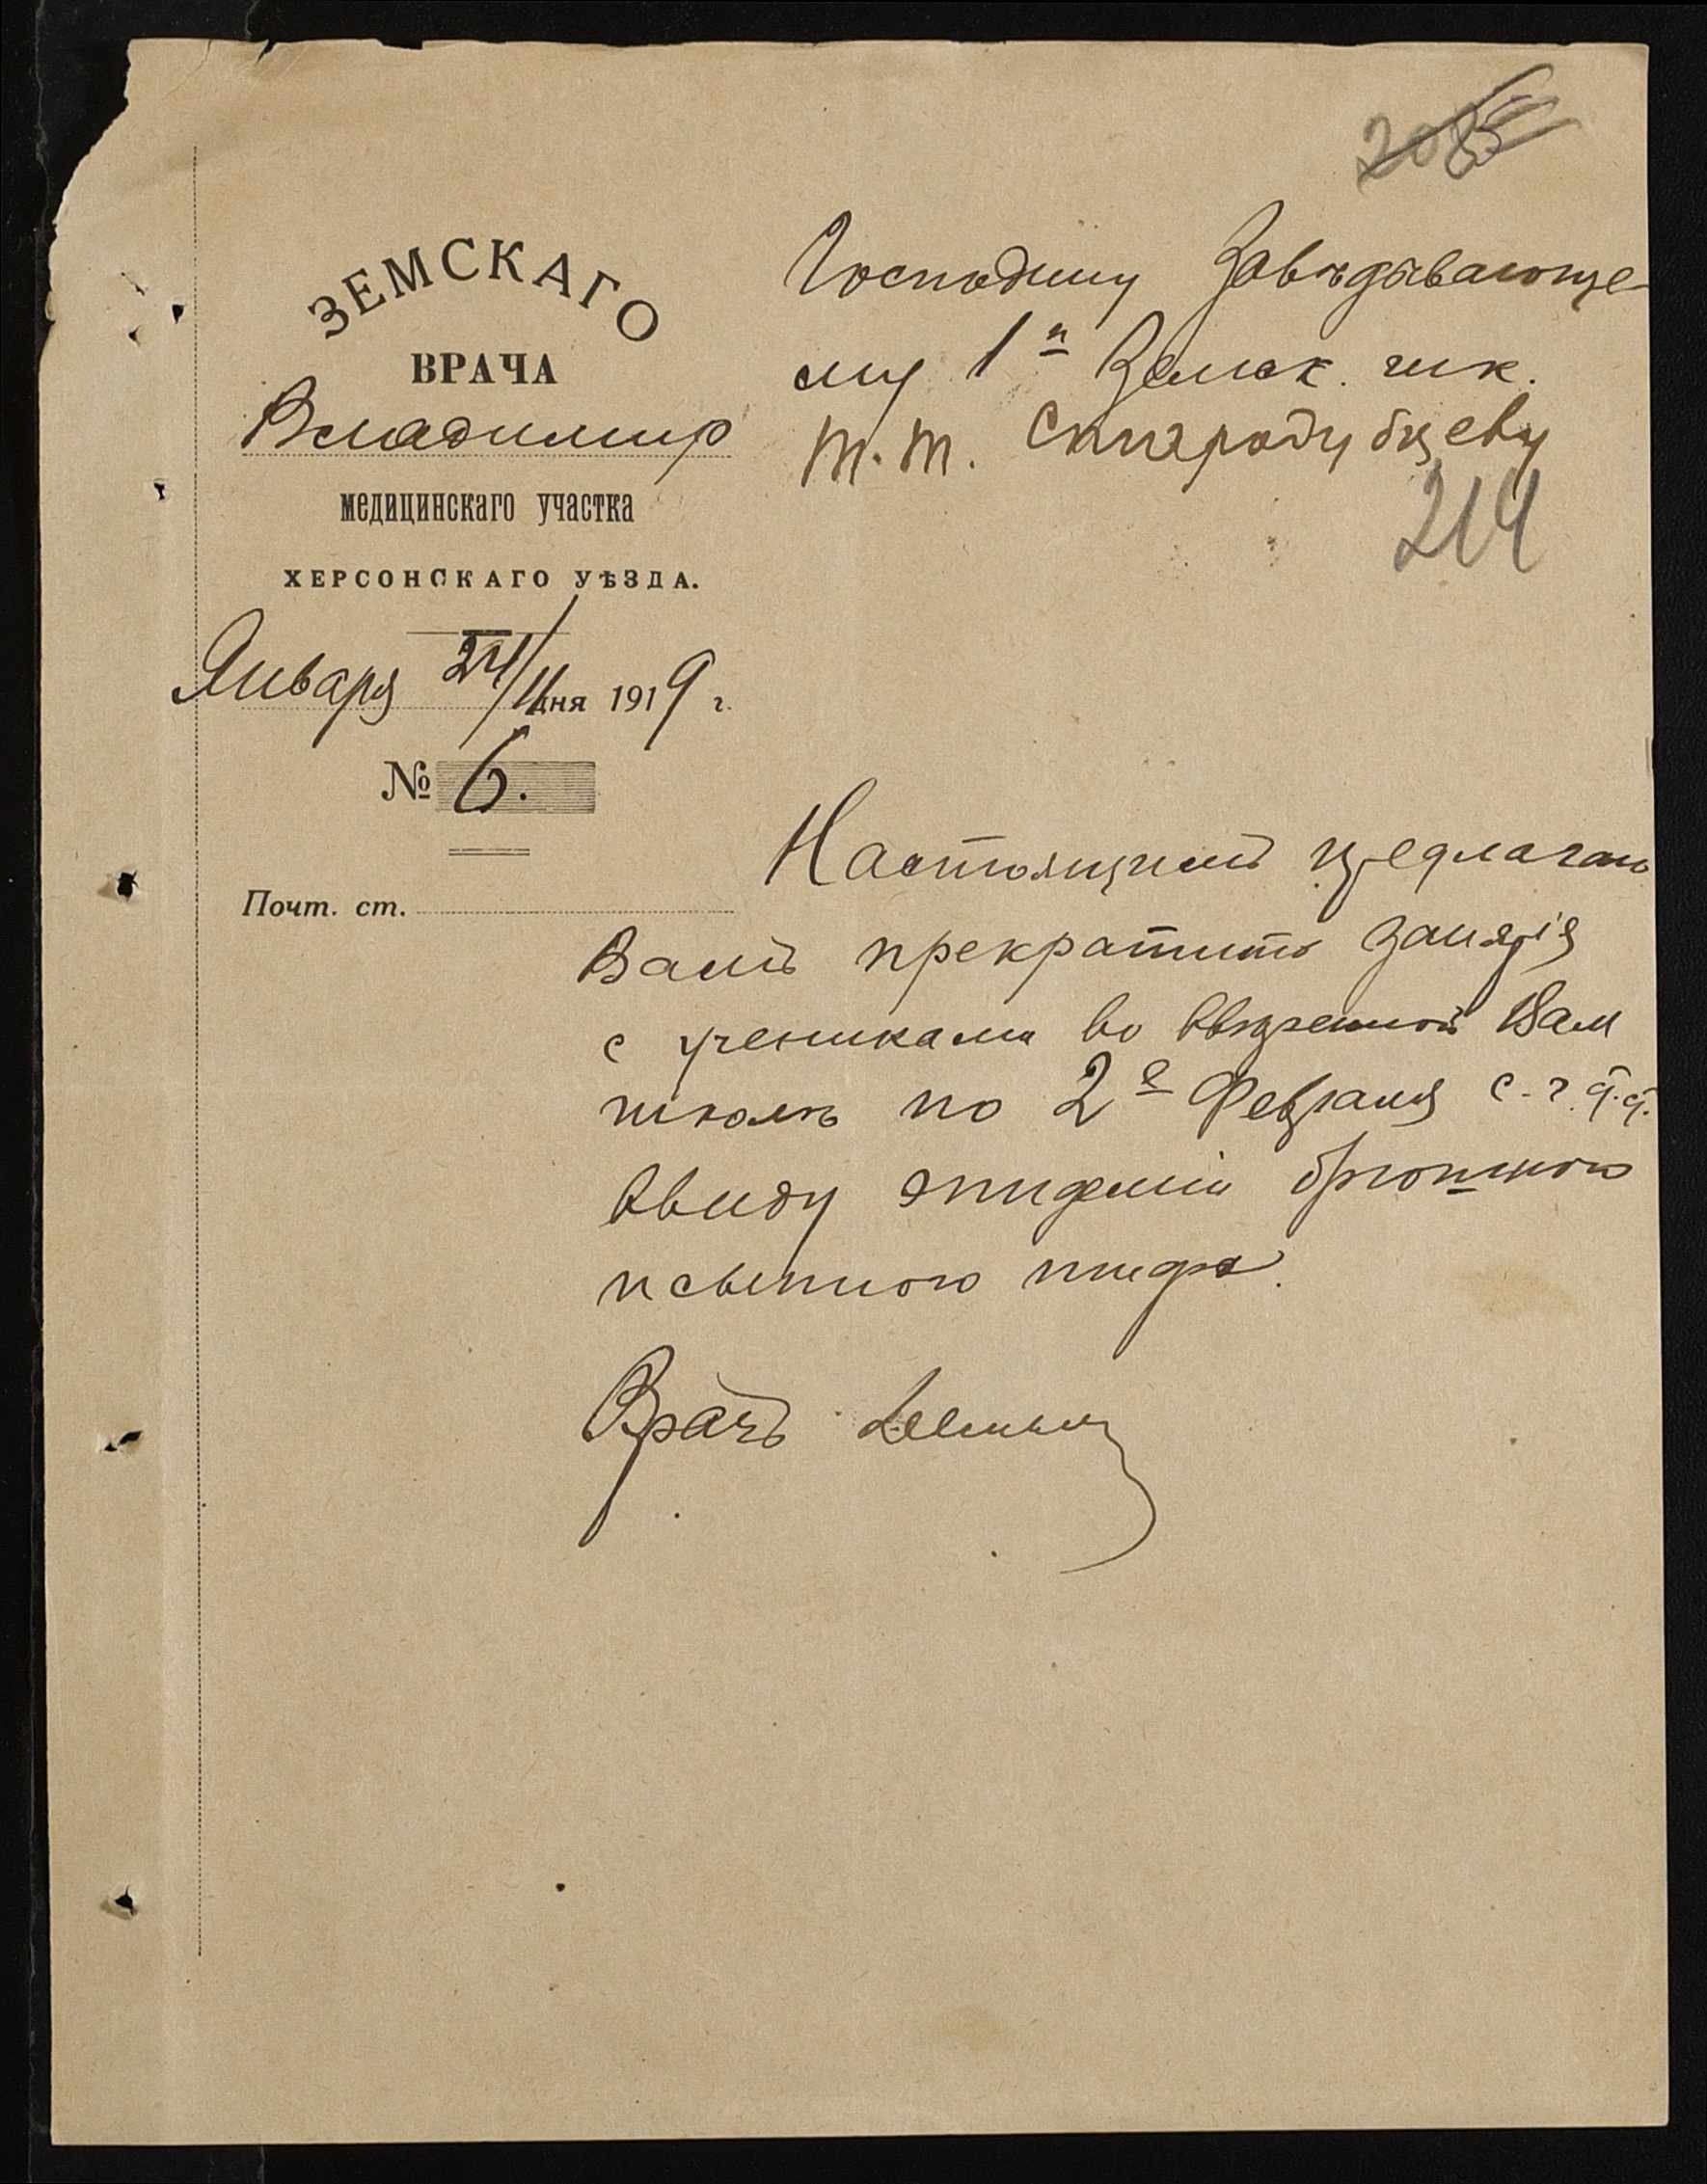 ЗЕМСКАГО
ВРАЧА
Владимир
медицинскаго участка
ХЕРСОНСКАГО УѢЗДА.
Января 24/11 дня 1919 г.
№ 6.
Почт. ст.
Господину Завѣдывающе-
му 1й Земск. шк.
Т. Т. Стародубцеву
214
Настоящимъ предлагаю
Вамъ прекратить занятія
с учениками во ввѣренной Вам
школѣ по 2е Февраля с. г.
ввиду эпидеміи брюшного
и сыпного тифа.
Врачъ